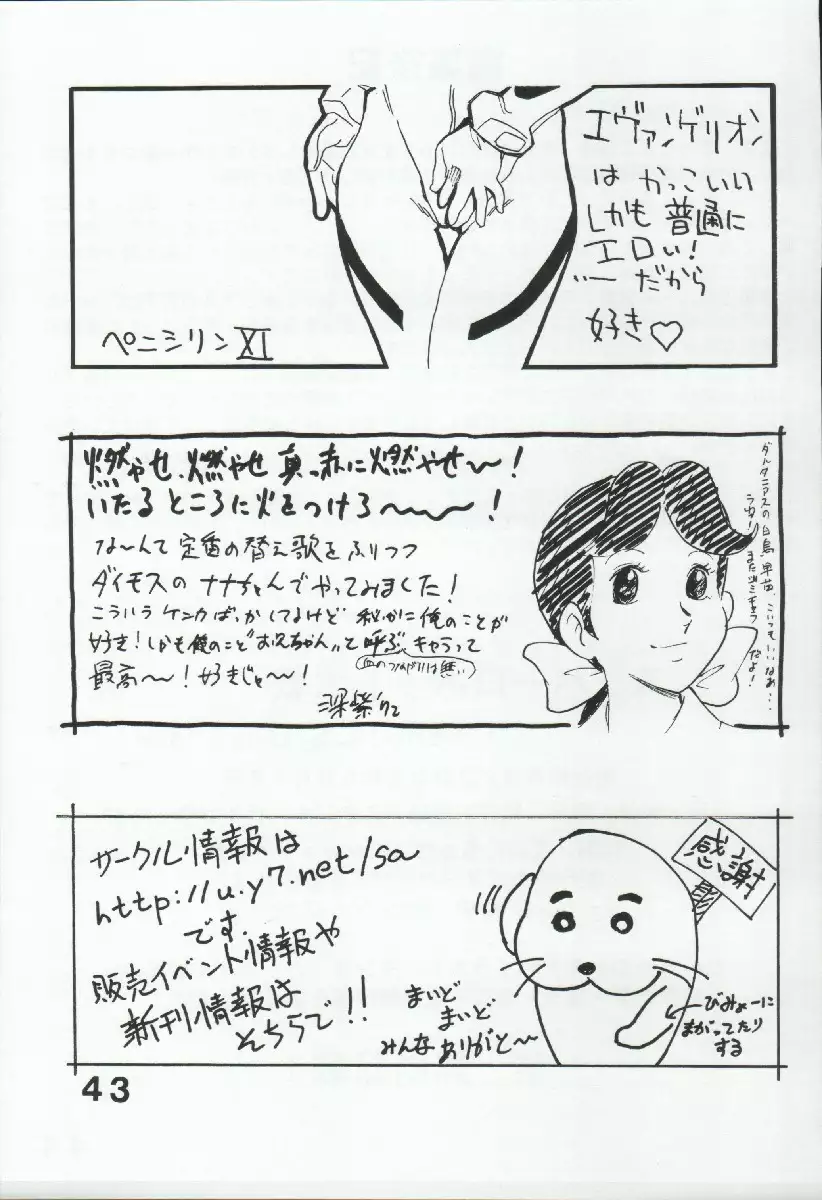 エヴァンゲリオン
は かっこいい
しかも 普通に
エロい!
…だから
好き♡
ペニシリンXI
燃やせ、燃やせ 真っ赤に燃やせ〜!
いたるところに火をつけろ〜〜〜!
な〜んて定番の替え歌をふりつつ
ダイモスの ナナちゃんでやってみました!
こういう ケンカばっかしてるけど 秘かに俺のことが
好き!しかも俺のこと"お兄ちゃん"って呼ぶキャラって
(血のつながりは無い)
最高〜〜!好きじゃ〜〜!
深紫'02
ダルタニアスの白鳥早苗、こいつもいいなあ…
また
だよ!
サークル情報は
http://u.y7.net/sa
です.
販売イベント情報や
新刊情報は
そちらで!!
感謝
まいど
まいど
みんな ありがと〜
びみょーに
まがってたり
する
43